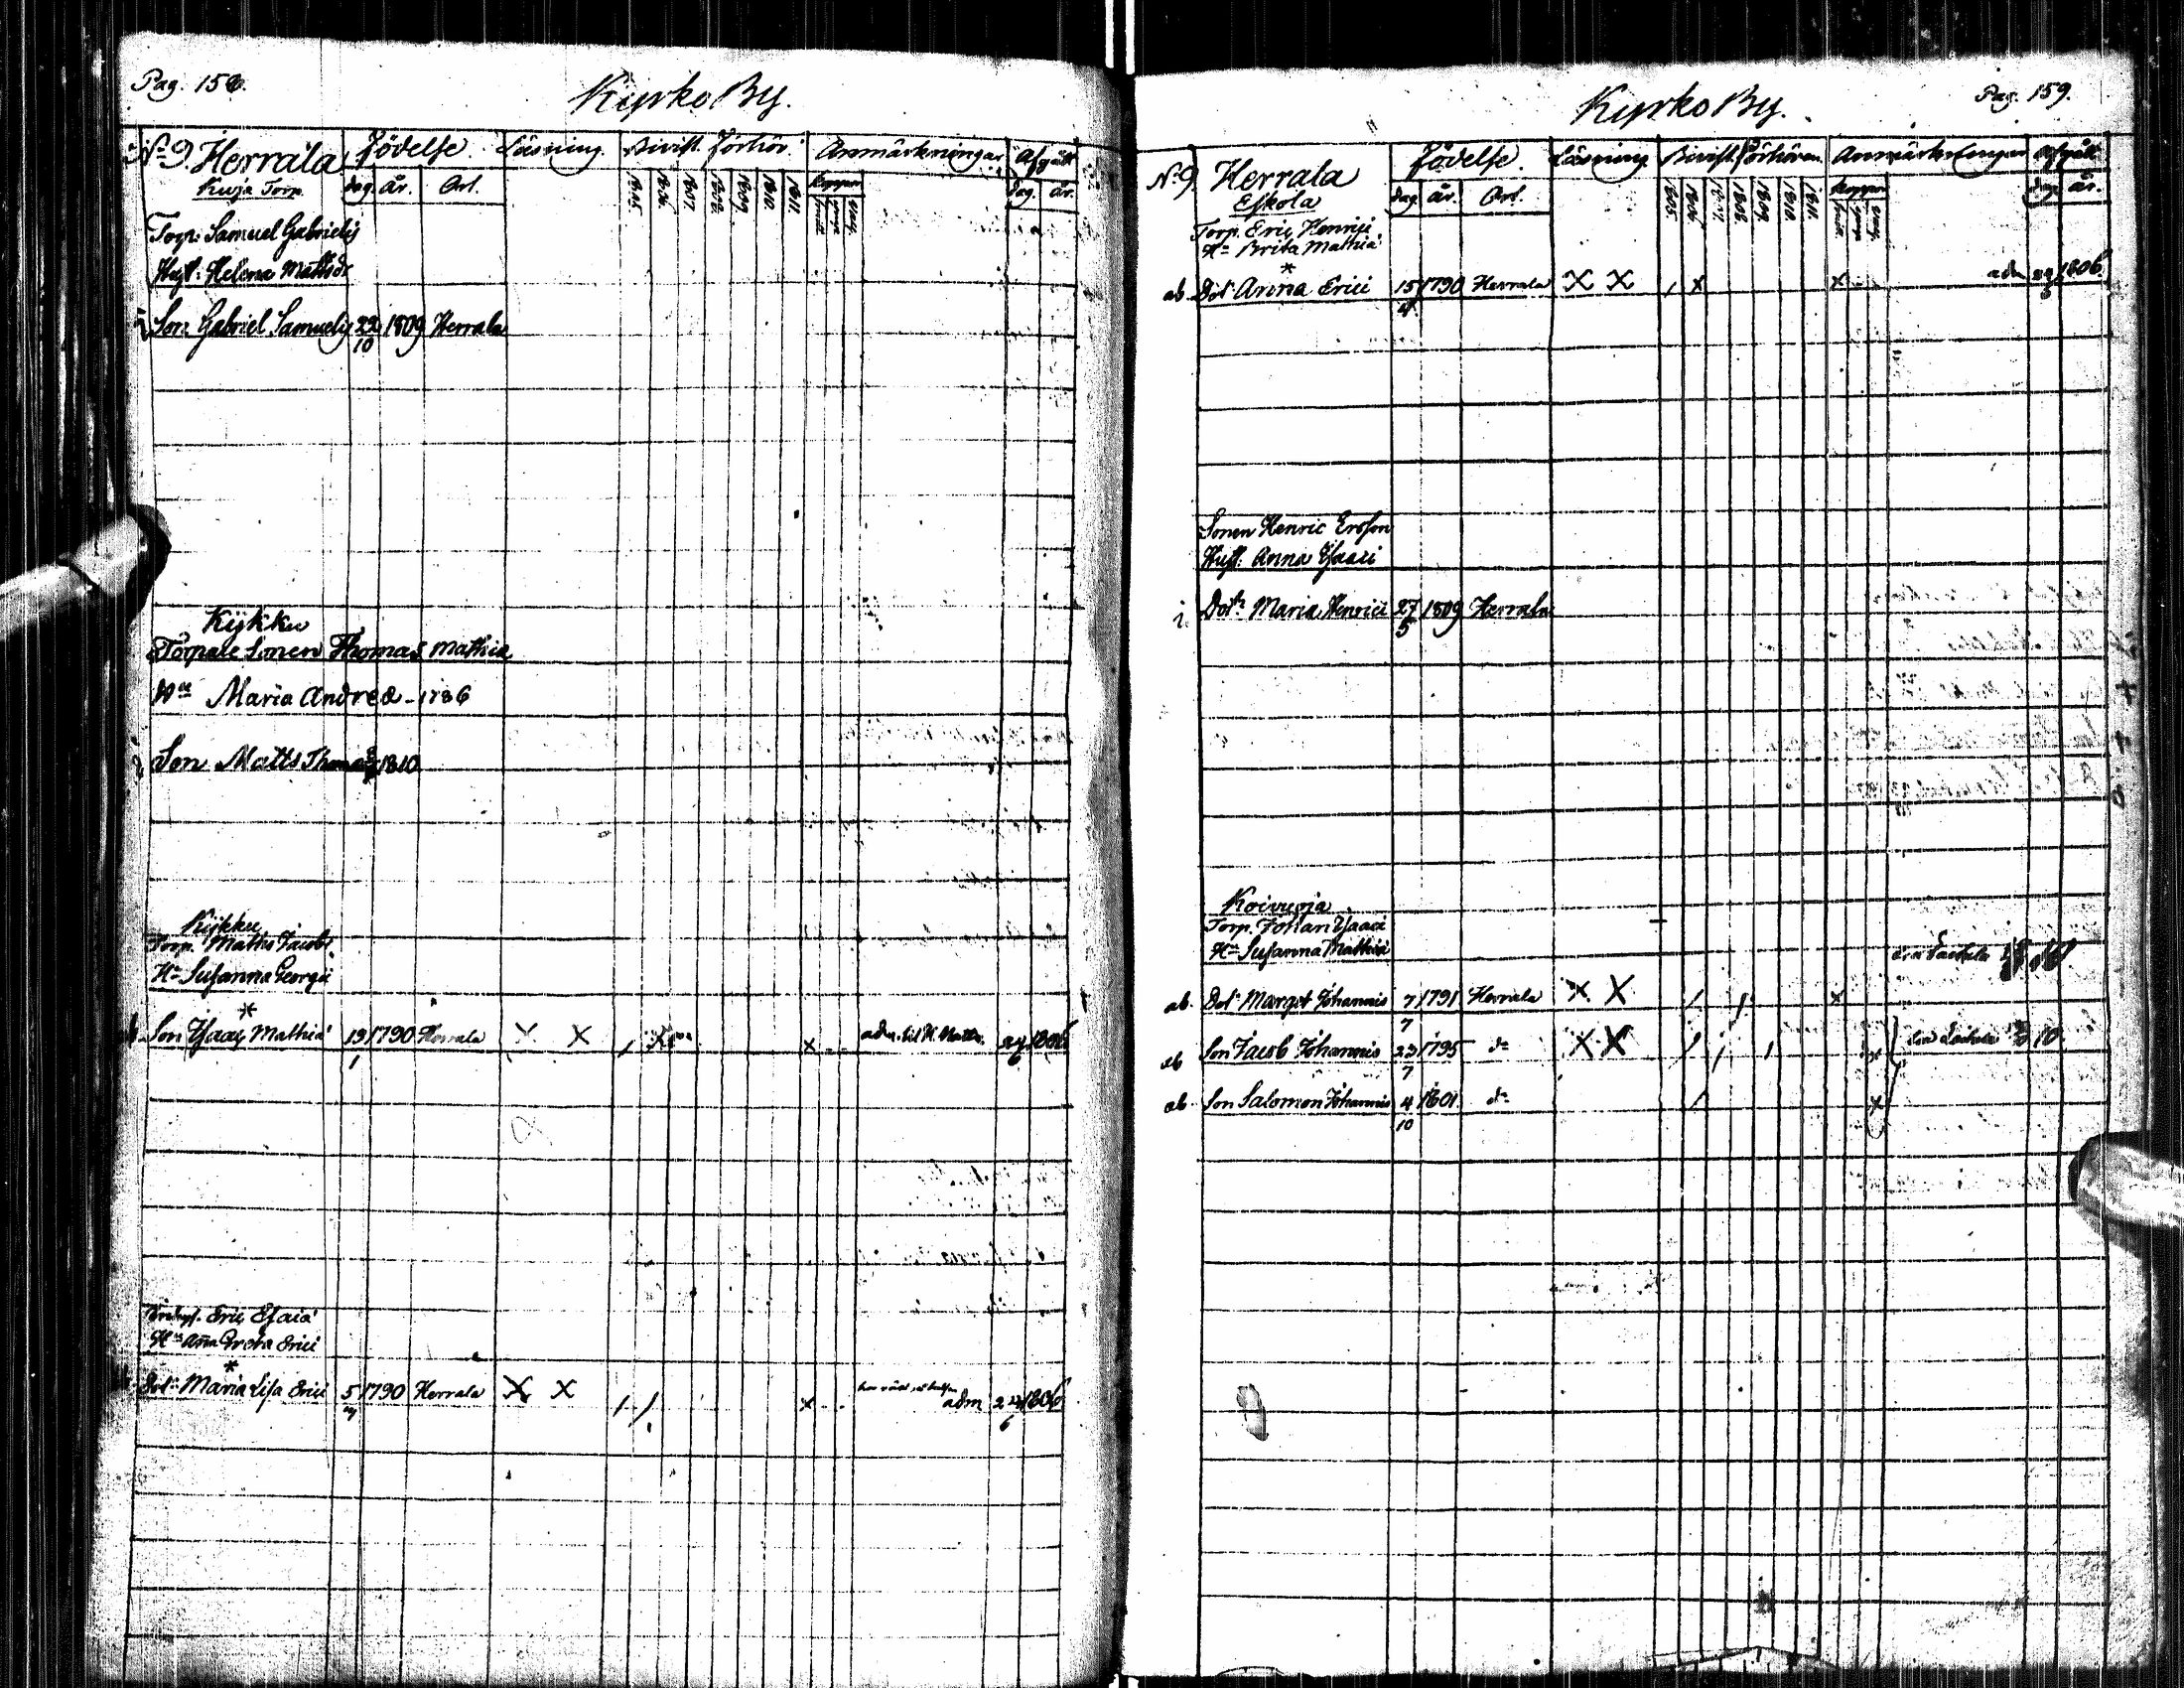 Pag. 158.
Kyrko By.
No 9. Herrala Födelse. Läsning. Bivist. Förhör. Anmärkningar Afgått
Kuja Torp. dag. år. Ort. 1805. 1806. 1807. 1808. 1809. 1810. 1811. Koppor dag. år.
Torp: Samuel Gabrielis
Hust: Helena Mattsdr
Son: Gabriel Samuelis 22/10 1809 Herrala
Kykku
Torpare Sonen Thomas Mathiæ
Maria Andreæ - 1786
Son Matts Thomæ 1810
Kykku
Torp. Matts Jacobi
Ha Susanna Georgii
*
Son Isaac Mathiæ 19/1 1790 Herrala X X 1 X adm. 24/6 1806
Eric Esaiæ
Ha Anna Greta Erici
*
Dotr Maria Lisa Erici 5 1790 Herrala X X 1 1 X adm 22/6 1806
Pag. 159.
Kyrko By.
No 9 Herrala Födelse. Läsning Bivist. Förhören. Anmärkningar Afgått
Eskola dag. år. Ort. 1805. 1806. 1807. 1808. 1809. 1810. 1811. Koppor dag. år.
Torp. Eric Henrici
Ha Brita Mathiæ
*
ab. Dotr Anna Erici 15/4 1790 Herrala X X 1 X X adm 1806.
Sonen Henric Ersson
Hust: Anna Isaaci
Dotr Maria Henrici 27/5 1809 Herrala
Koivuoja
Torp. Johan Isaaci
Ha Susanna Mathiæ
ab. Dotr Marget Johannis 7/7 1791 Herrala X X 1 1 X
ab Son Jacob Johannis 23/7 1795 do X X 1 1 1 X 10.
ab Son Salomon Johannis 4/10 1801 do 1 X